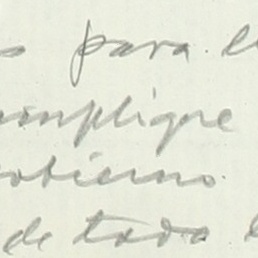 para
mplique
obierno
de todo